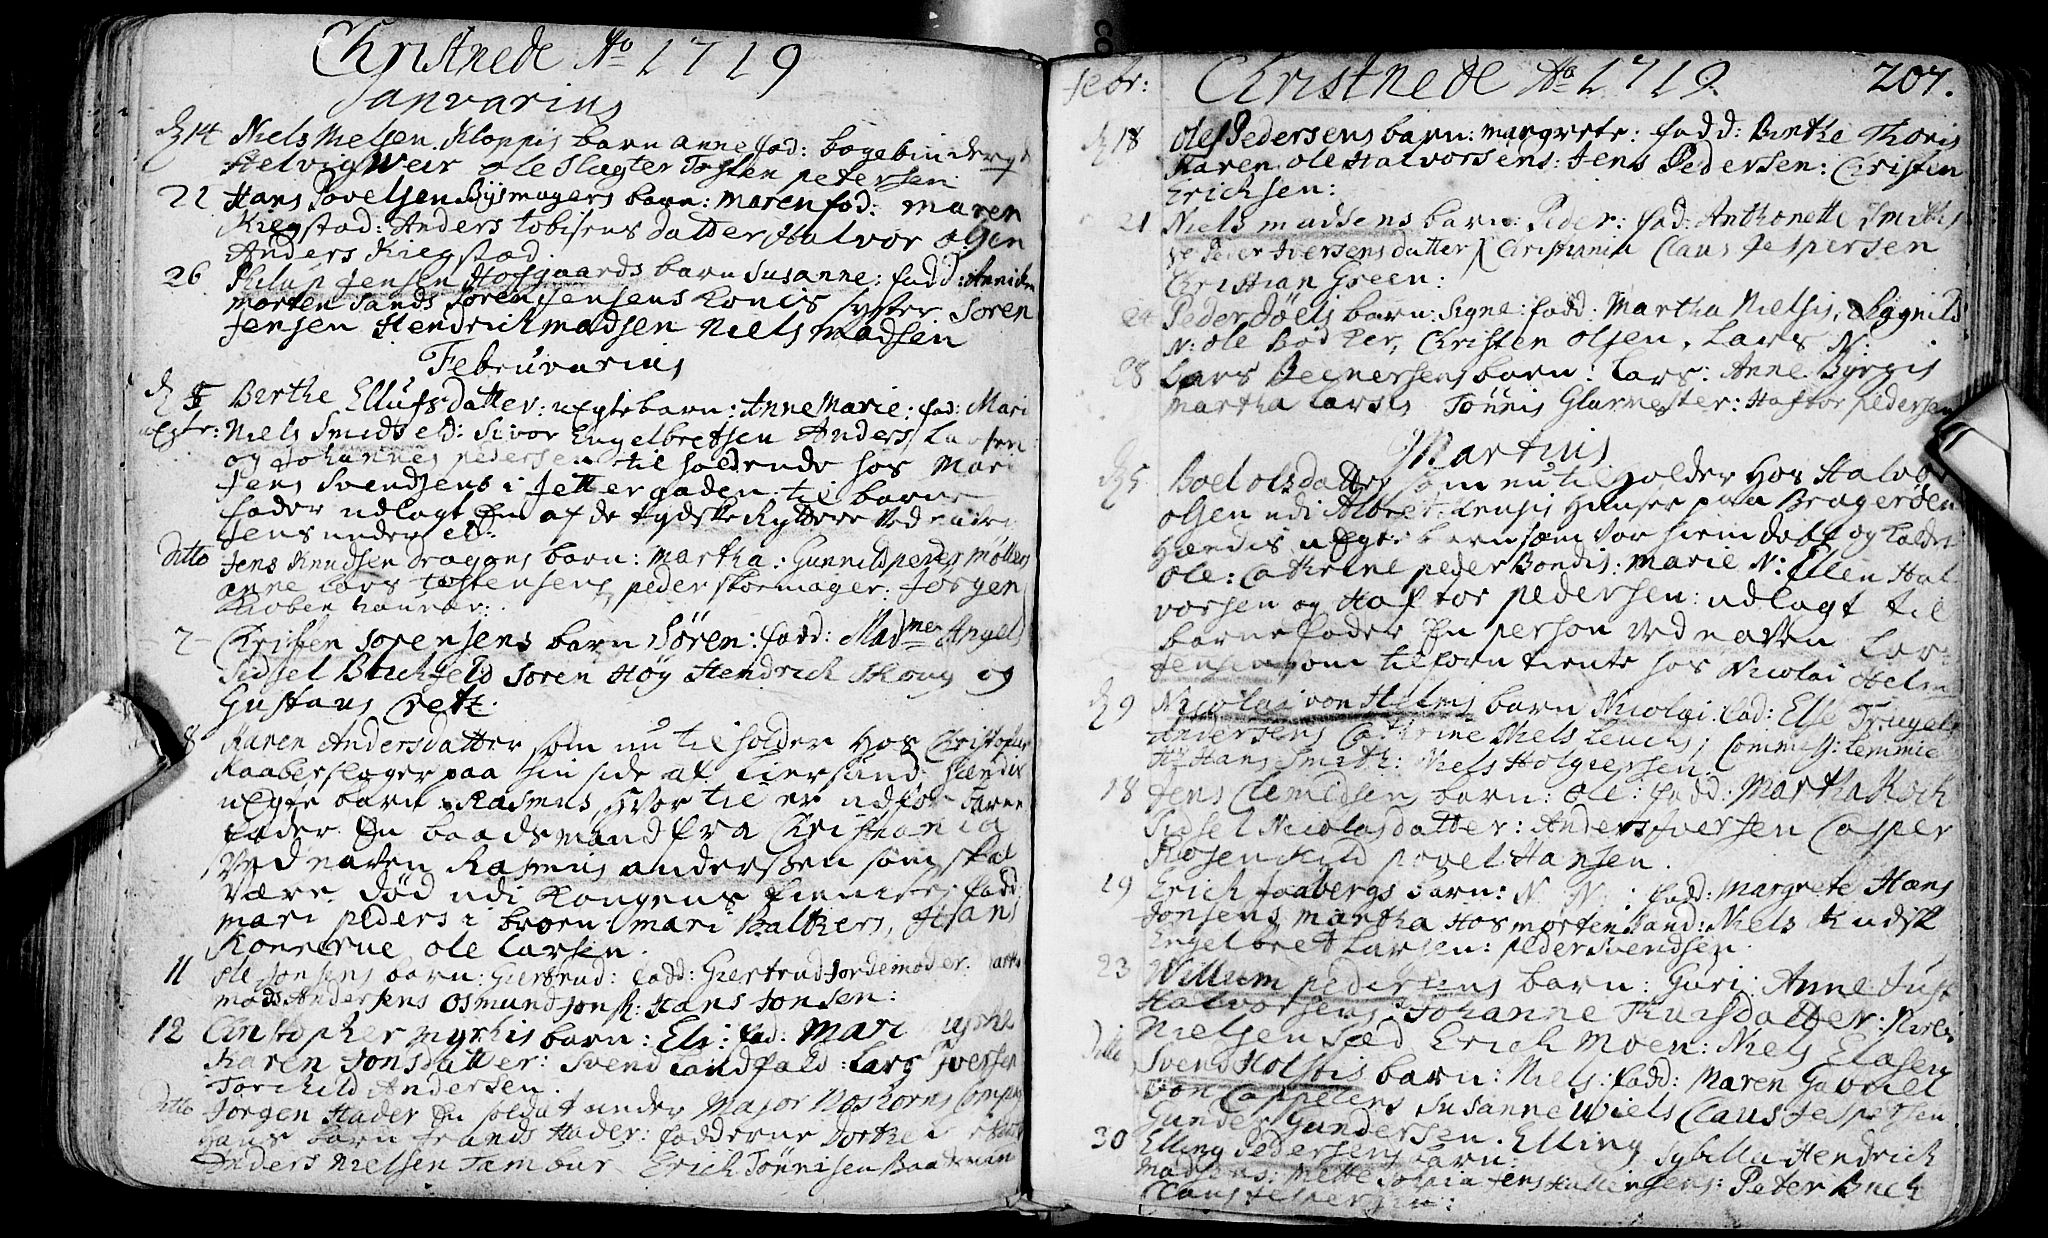 Christnede Ao 1719
Januarius
14 Niels Nielsen Kloppis barn Anne fad: bogebinders
Helvig Weir ole Slagter Tosten petersen
22 Hans Povelsen Bysmagers barn: maren fad: maren
Kiegstad: Anders tobisens datter Halvor olsen
Anders Kiegstad
26 Philup Jensen Hofgaards barn Susanne: fadd: Anniken
morten Sands Soren Jensens Konis syster Soren
Jensen Hendrich madsen Niels madsen
Februvarius
5 Berthe Ellufsdatter: uegte barn: Anne Marie: fad: Mari
Niels Smeds eld: Sivor Engelbretsen Anders Larsen
og Johannes pedersen til holdende hos Mari
Jens Svendsens i Jettergaden til barne
fader udlagt En af de tydske Ryttere ved navn
Jens
Ditto Jens Knudsen dragons barn: martha: Gunnild peder møllers
anne Lars tostensens peder skomager: Jørgen
2 Christen sørensens barn Søren: fadd: Mad
Sidsel Buchfeld Soren Høy Hendrich Skoug og
Gustaus Crett.
8 Karen Andersdatter som nu til holder hos Christopher
Kaaberslager paa hin side af Liersund: hendis
uegte barn Rasmus hvor til er udført barne
fader En baadsmand fra Christiania
ved naven Rasmus anderssen som skal
være død udi Kongens tienniste: fadd:
mari peders i broen: mari Balkers, Hans
Konnerue ole Larsen.
11 ole Jonsens barn: Giertrud: fadd: Giertrud Jordemoder
mads Andersens osmund Jons: Hans Jonsen:
12 Christopher myrhis barn: Eli: fad: Mari
Karen Jonsdatter: Svend Landfald: Lars Iversen
Torchild Andersen.
Ditto Jorgen Hader En soldat under Major Noskorns Comp
hans barn frands Hader: fadderne dorthe
Anders Nielsen Tambur Erich Tønnisen Baadsman
febr: Christnede Ao 1719. 207.
18 ole Pedersens barn: margrete: fadd: Birthe Thoris
Karen ole Halvorsens: Jens Pedersen: Christen
Erichsen:
21 Niels madsens barn: Peder: fad: Anthonette Smiths
Peder Iversens datter i Christiania Claus Jespersen
Christian Green:
24 Peder Joels barn: Signe: fadd: Martha Nielsis,
N: ole Bødker, Christen olsen, Lars N:
28 Lars Beenersens barn: Lars: Anne Byrgis
martha Larsis Tønnis Glarmester: Haftor pedersen
Martius
5 Boel olsdatter som nu til holder hos Halvor
olsen udi Albret huuse paa Bragernæs
hendis uegte barn som var hiem døbt og kaldet
ole: Cathrine peder Bondis: marie N: Ellen Hal
vorsen og Haftor pedersen: udlagt til
barnefader En person ved naven Lars
Jensen som tilforn tiente hos Nicolai Helm
9 Nicolai von Helms barn Nicolai: fad: Else Trugels
Andersens Cathrine Niels Leuchs, Commiss: Lemmich
Hr Hans Smith: Niels Holgersen.
18 Jens Clemedsens barn: ole: fadd: Martha Koch
Sidsel Nicolasdatter: Anders Iversen Casper
Rosenkild povel Hansen.
19 Erich faabergs barn: N. N.: fadd: Margrete Hans
Jonsens martha Hos morten Sand: Niels Kudsk
Engelbret Larsen: peder Svendsen.
23 Willum pedersens barn: Guri: Anne Just
Halvorsens: Johanne Knudsdatter: Niels
Nielsen Sæd Erich Moen: Niels Elasen
Ditto Svend Holstis barn: Niels: fadd: Maren Gabriel
von Cappelens Susanne Wiels Claus Jespersen
Gunder Gundersen.
30 Elling Pedersens barn: Elling Sybilla Hendrich
Madsens: Mette Sophia Jens Hallensens: Peter Buch
Claus Jespersen: